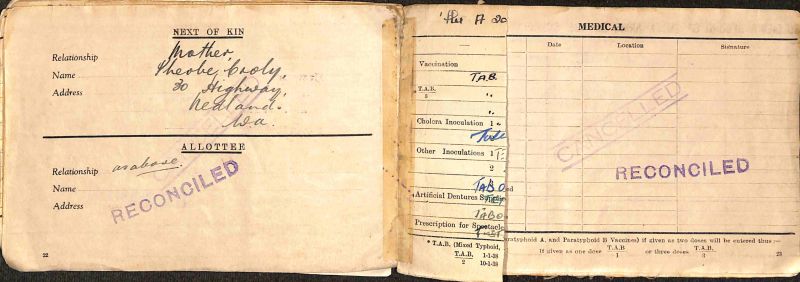 NEXT OF KIN
Relationship Mother,
Name Pheobe Cooly,
Address 30 Highway,
Nedland.
Wa.
ALLOTTEE
Relationship as above.
Name
Address
RECONCILED
22
A 20
Vaccination
T.A.B.
T.A.B.
3
Cholera Inoculation 1
Other Inoculations 1
2
TABO
Artificial Dentures
TABO
Prescription for Spectacle
* T.A.B. (Mixed Typhoid,
T.A.B. 1-1-38
2 10-1-38
MEDICAL
Date Location Signature
CANCELLED
RECONCILED
aratyphoid A, and Paratyphoid B Vaccines) if given as two doses will be entered thus :—
If given as one dose T.A.B. or three doses T.A.B.
1 3
23